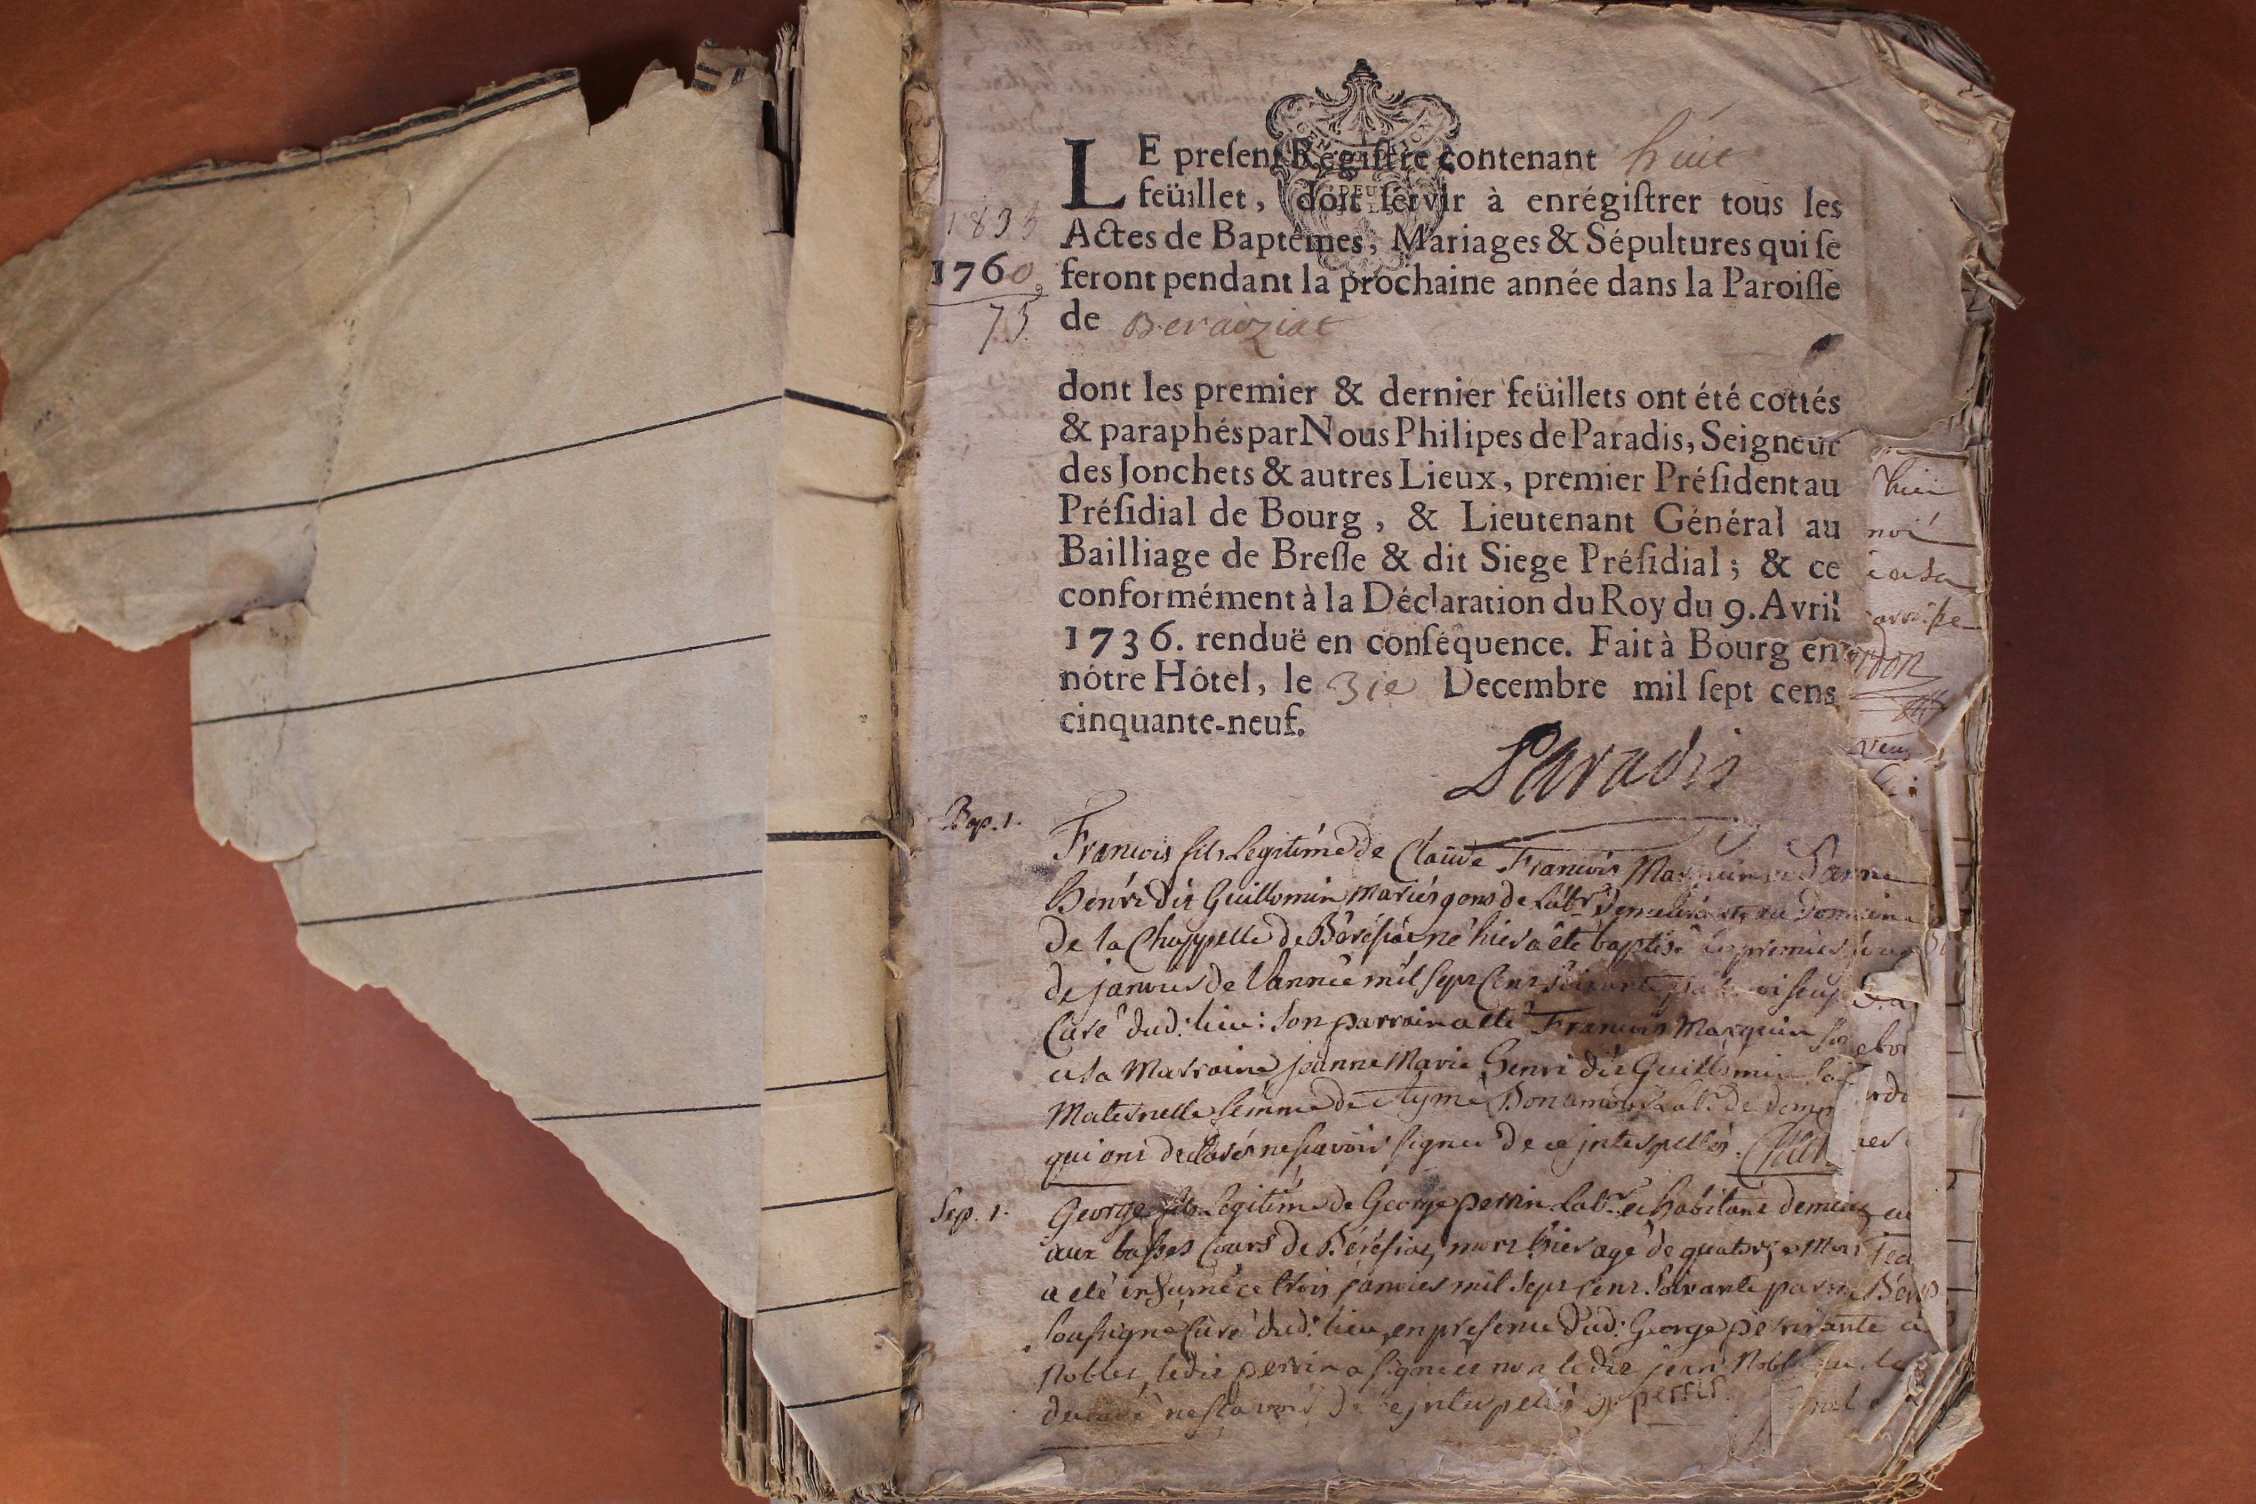 LE preſent Regiſtre contenant huit
feüillet, doit ſervir à enrégiſtrer tous les
1835
Actes de Baptêmes, Mariages & Sépultures qui ſe
1760
feront pendant la prochaine année dans la Paroiſſe
75
de Beraiziat
dont les premier & dernier feüillets ont été cottés
& paraphés par Nous Philipes de Paradis, Seigneur
des Jonchets & autres Lieux, premier Préſident au
Préſidial de Bourg, & Lieutenant Général au
Bailliage de Breſſe & dit Siege Préſidial; & ce
conformément à la Déclaration du Roy du 9. Avril
1736. renduë en conſéquence. Fait à Bourg en
nôtre Hôtel, le 31e Decembre mil ſept cens
cinquante-neuf.
Paradis
Bap. 1.
François fils Legitime de Claude François Marguin
henri dit Guillomin mariés gens de labr demeurants au domaine
de la Chappelle de Béréſiat né hier a été baptisé le premier jour
de janvier de l'année mil sept cent soixante par moi soussigné
Curé dud: lieu: son parrain a été François Marguin
et sa Marraine jeanne Marie henri dit Guillomin
Maternelle femme de Aymé Bonamour lab. de
qui ont declarés ne scavoir signer de ce jnterpellés.
Sep. 1.
George fils Legitime de George perrin labr. et habitant demeur
aux basses Cours de Béréſiat, mort hier agé de quatorze mois
a été inhumé ce trois janvier mil sept cent soixante par moi
soussigné Curé dud: lieu en presence dud: George perrin
Nobles, ledit perrin a signé et non ledit jean Nobl
declaré ne scavoir de ce jnterpellés g perrin